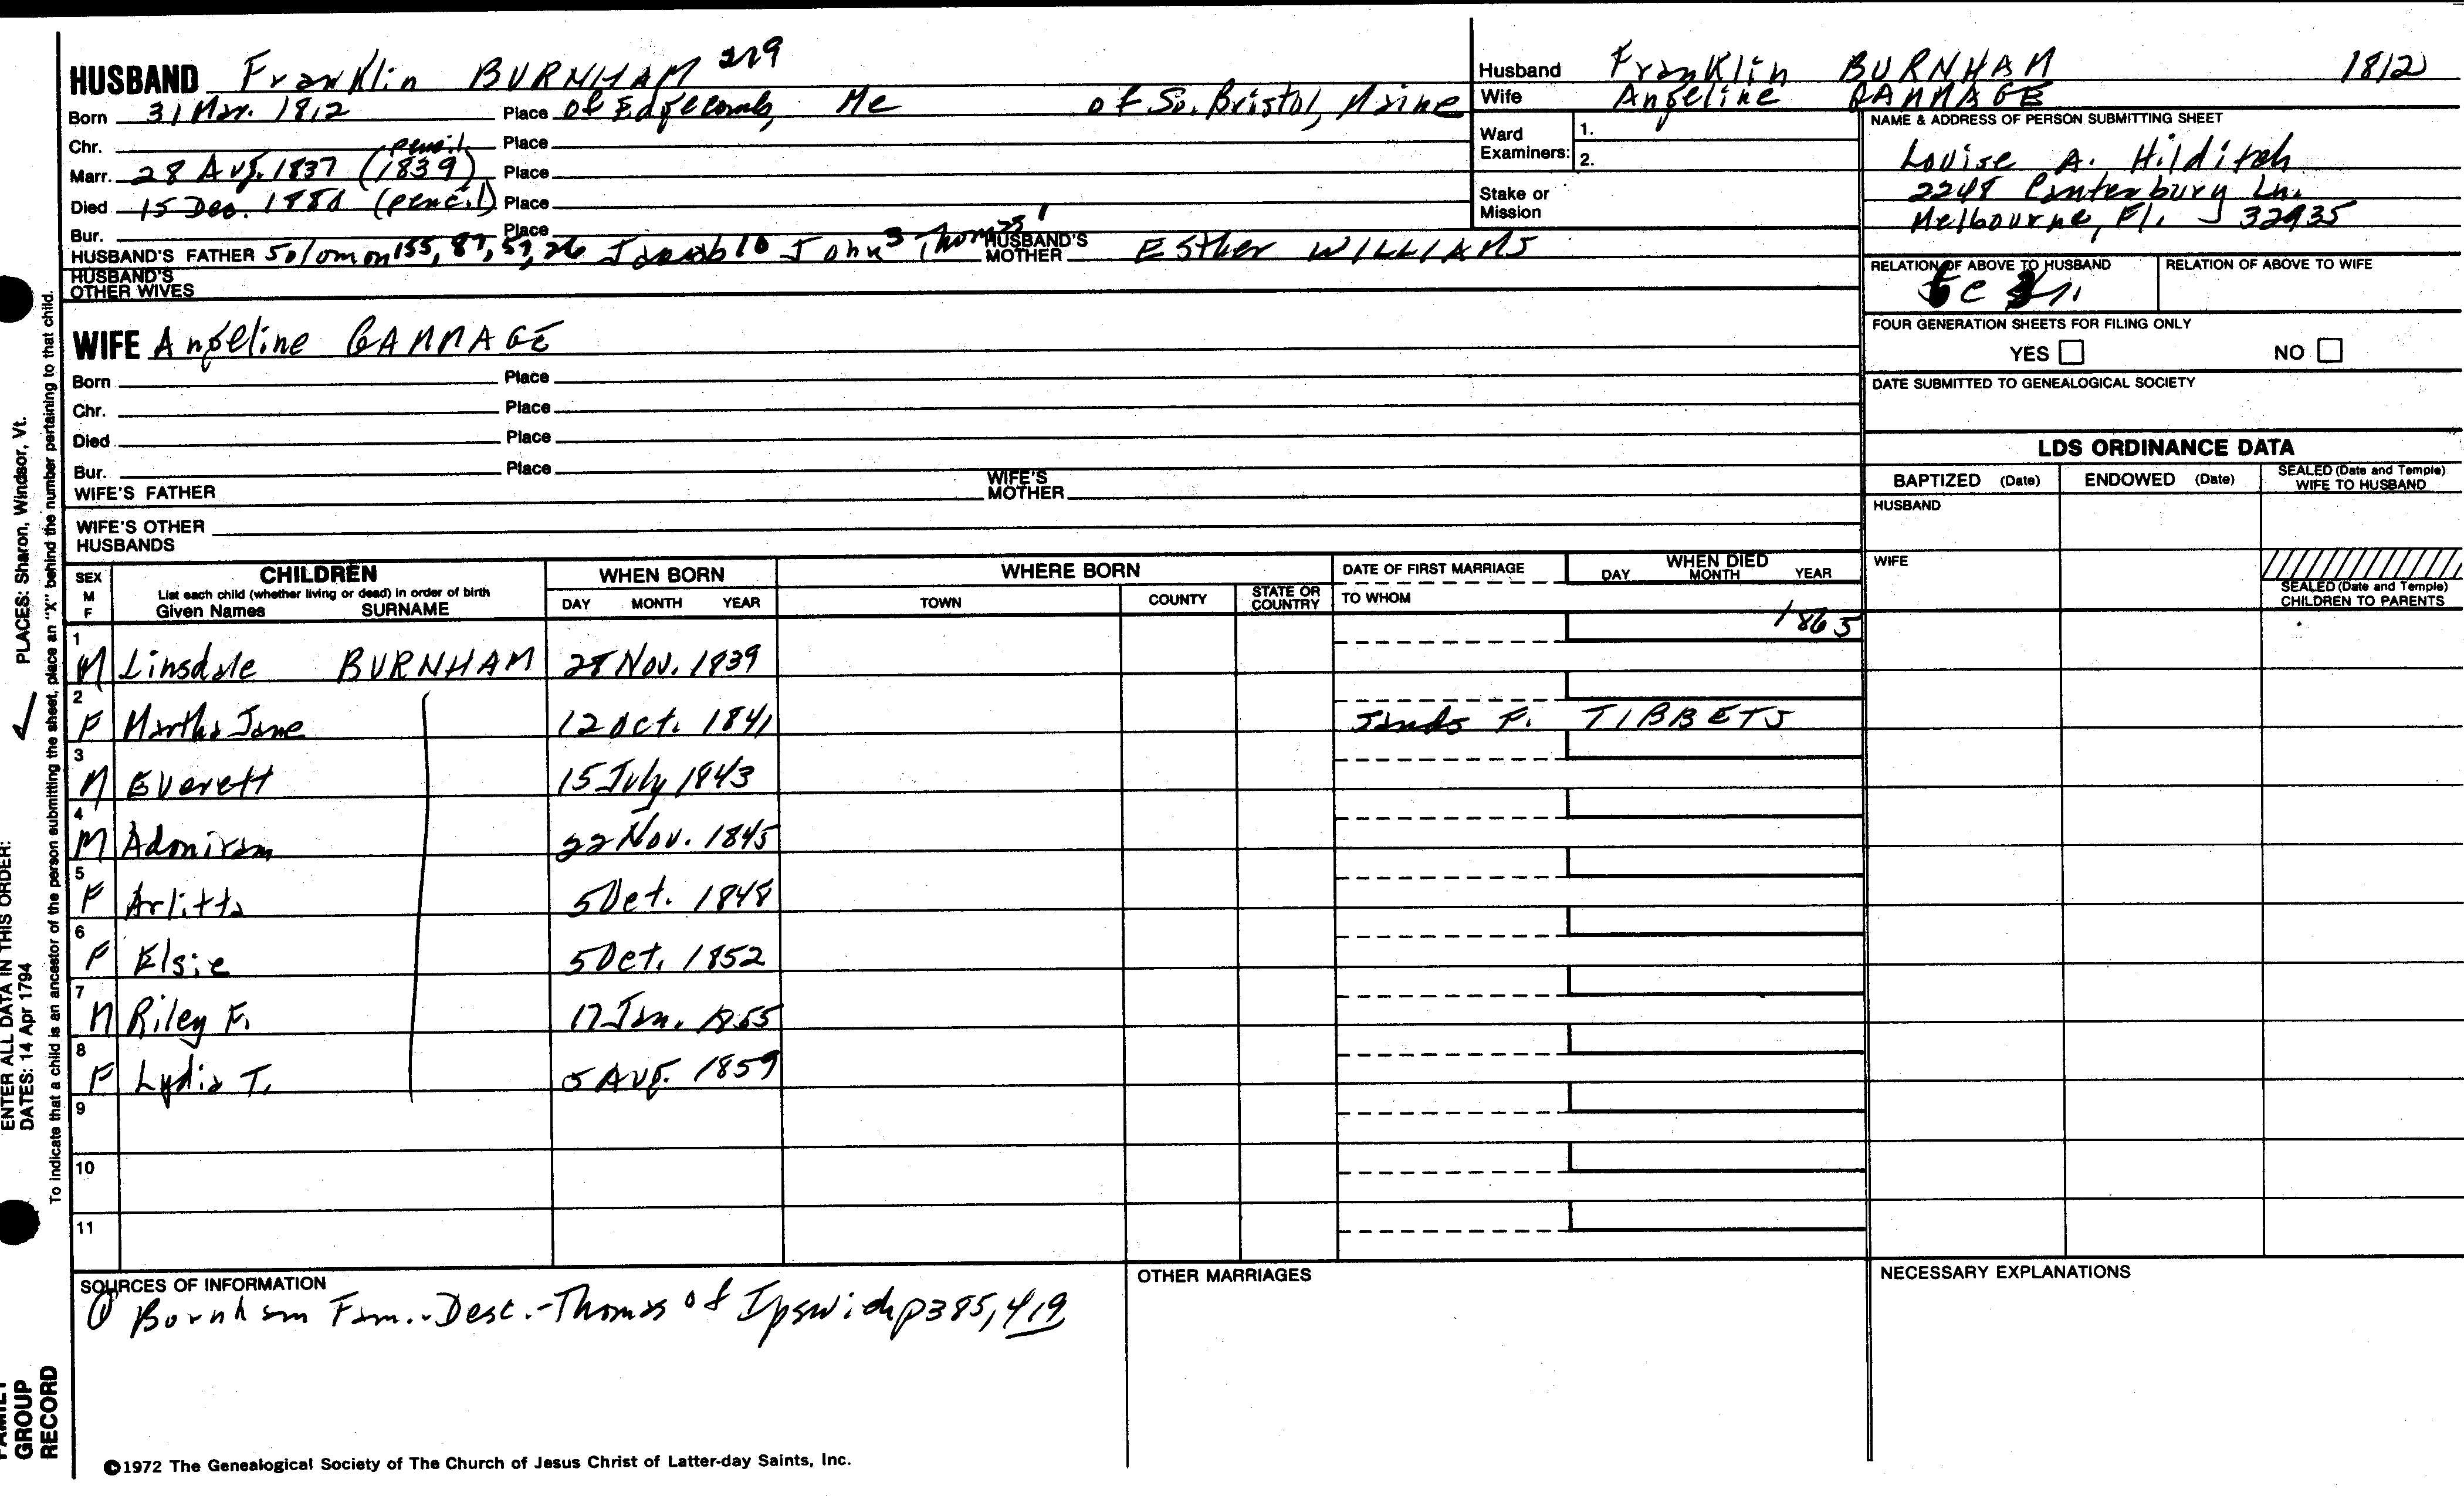 HUSBAND Franklin BURNHAM 219
Born 31 Mar. 1812 Place of Edgecomb, Me of So. Bristol, Maine
Chr. Place
pencil
Marr. 28 Aug. 1837 (1839) Place
Died 15 Dec. 1880 (pencil) Place
Bur. Place
HUSBAND'S FATHER Solomon 155, 87, 57, 26 Jacob 10 John 3 Thomas 1 HUSBAND'S MOTHER Esther WILLIAMS
HUSBAND'S OTHER WIVES
WIFE Angeline GAMMAGE
Born Place
Chr. Place
Died Place
Bur. Place
WIFE'S FATHER WIFE'S MOTHER
WIFE'S OTHER HUSBANDS
Husband Franklin BURNHAM 1812
Wife Angeline GAMMAGE
Ward Examiners: 1.
2.
Stake or Mission
NAME & ADDRESS OF PERSON SUBMITTING SHEET
Louise A. Hilditch
2248 Canterbury Ln.
Melbourne, Fl. 32935
RELATION OF ABOVE TO HUSBAND RELATION OF ABOVE TO WIFE
FOUR GENERATION SHEETS FOR FILING ONLY
YES NO
DATE SUBMITTED TO GENEALOGICAL SOCIETY
LDS ORDINANCE DATA
BAPTIZED (Date) ENDOWED (Date) SEALED (Date and Temple) WIFE TO HUSBAND
HUSBAND
WIFE
SEALED (Date and Temple) CHILDREN TO PARENTS
SEX M F CHILDREN WHEN BORN WHERE BORN DATE OF FIRST MARRIAGE WHEN DIED
List each child (whether living or dead) in order of birth
Given Names SURNAME DAY MONTH YEAR TOWN COUNTY STATE OR COUNTRY TO WHOM DAY MONTH YEAR
1 M Linsdale BURNHAM 28 Nov. 1839 1865
2 F Martha Jane 12 Oct. 1841 James F. TIBBETS
3 M Everett 15 July 1843
4 M Adoniram 22 Nov. 1845
5 F Arlitta 5 Oct. 1848
6 F Elsie 5 Oct. 1852
7 M Riley F. 17 Jan. 1855
8 F Lydia T. 5 Aug. 1859
9
10
11
SOURCES OF INFORMATION
Burnham Fam.-Desc.-Thomas of Ipswich p385, 419
OTHER MARRIAGES
NECESSARY EXPLANATIONS
©1972 The Genealogical Society of The Church of Jesus Christ of Latter-day Saints, Inc.
To indicate that a child is an ancestor of the person submitting the sheet, place an "X" behind the number pertaining to that child.
PLACES: Sharon, Windsor, Vt.
ENTER ALL DATA IN THIS ORDER:
DATES: 14 Apr 1794
FAMILY GROUP RECORD